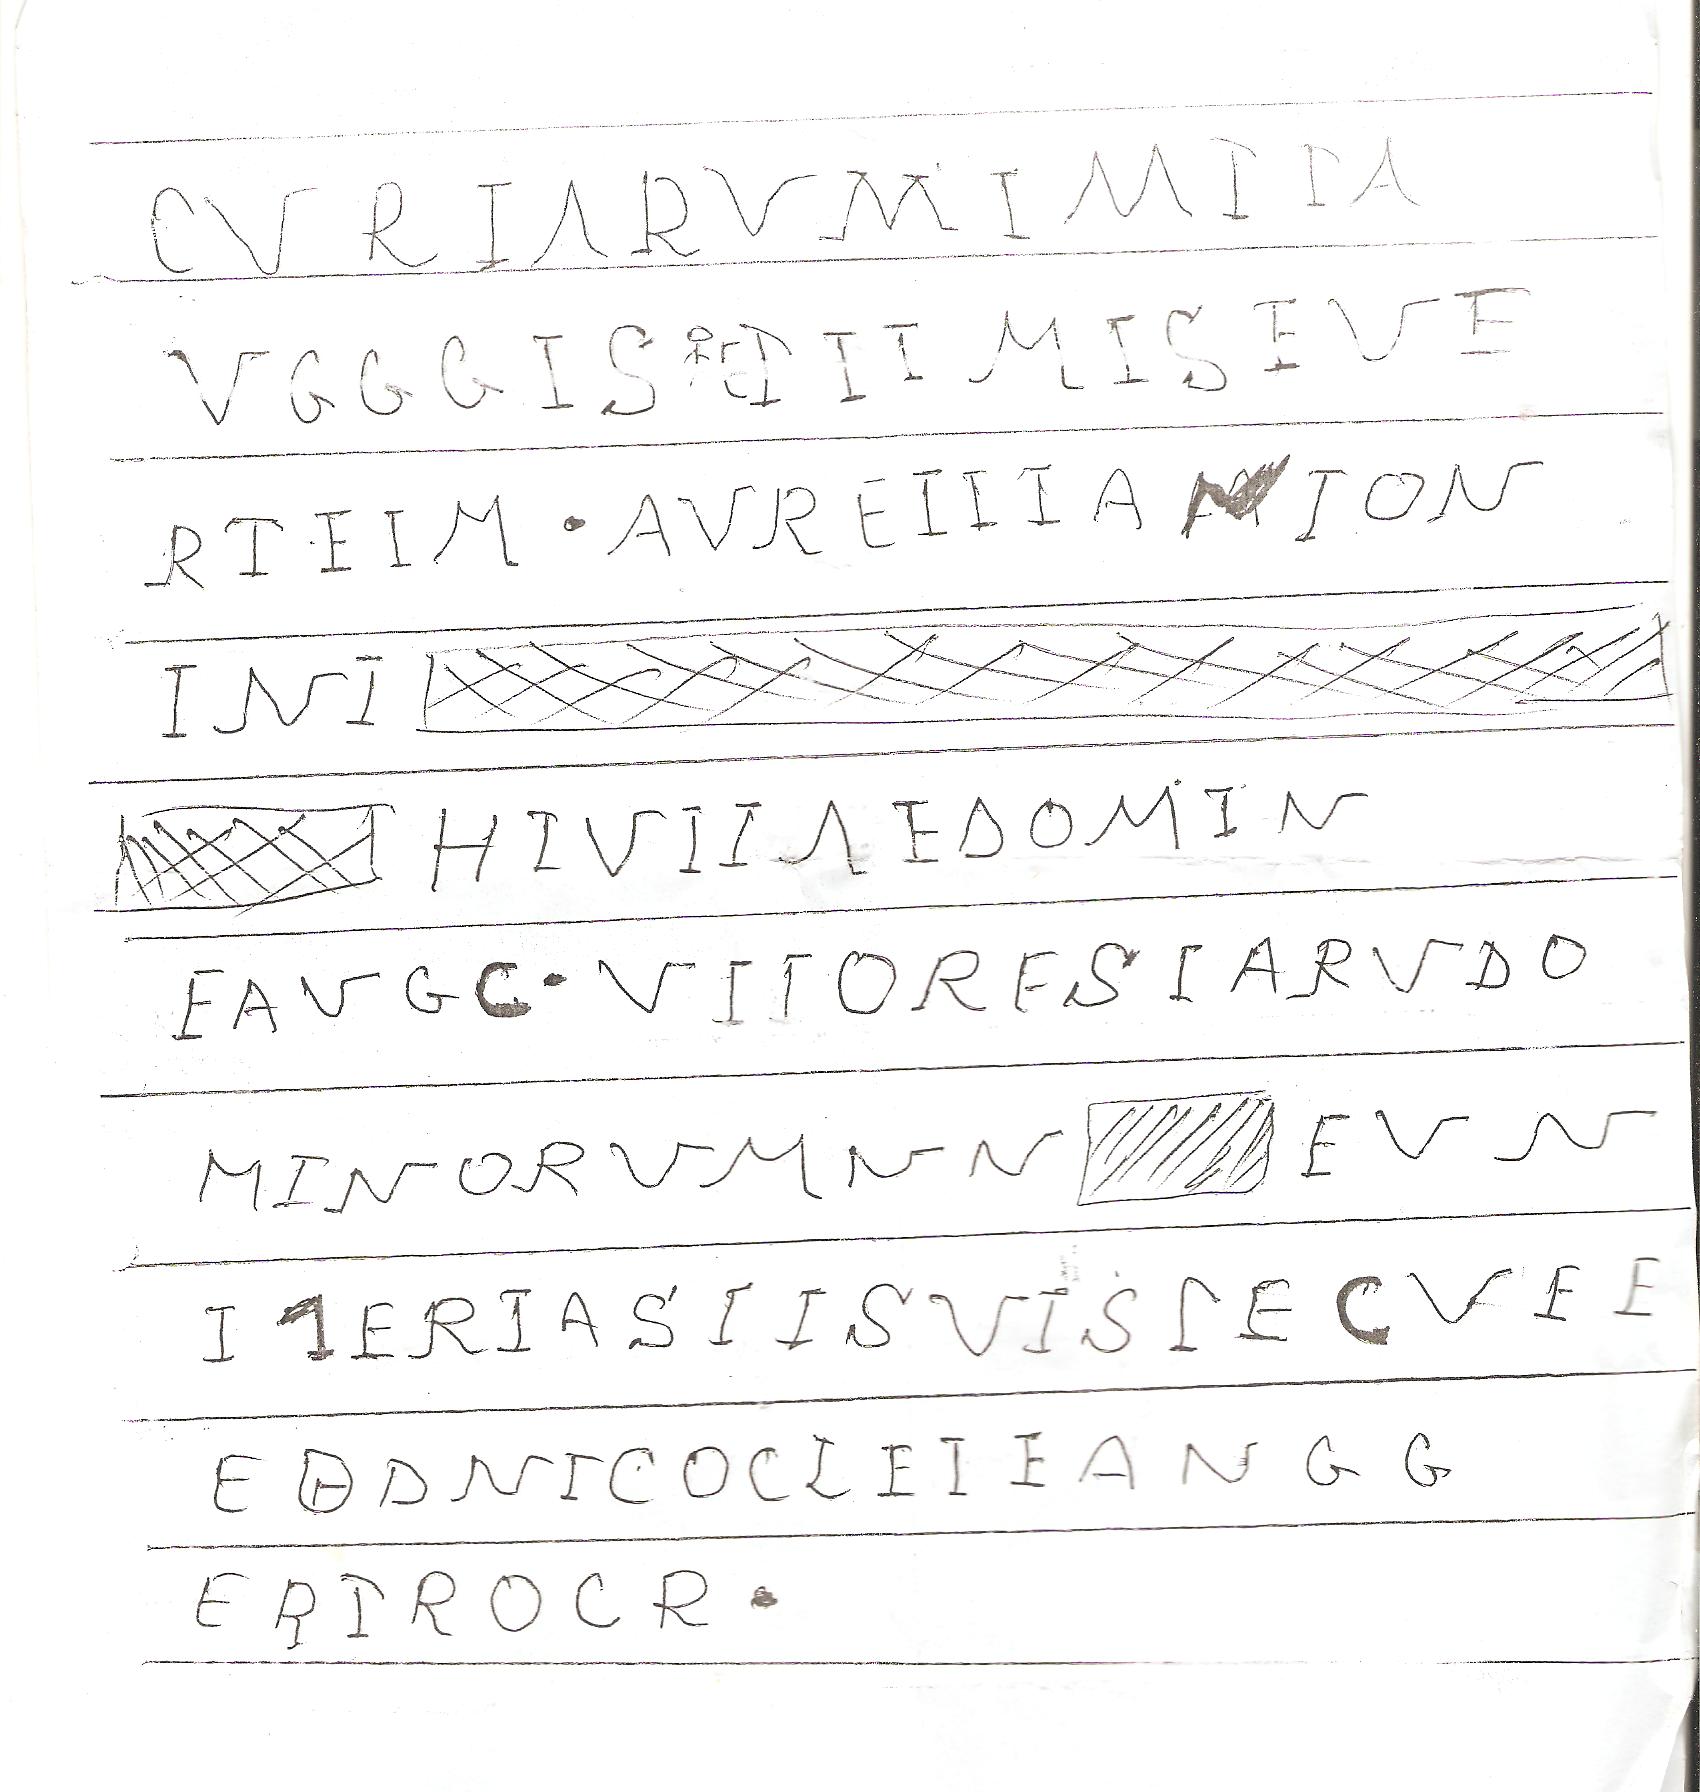 CVRIARVMIMITA
VGGGISETIIMISEVE
RTEIM·AVREIIIANION
INI
HIVIIAEDOMIN
EAVGC·VITORESIARVDO
MINORVMNN EVN
I1ERIASIISVISIECVEE
EDDNICOCLEIEANGG
ERTROCR·